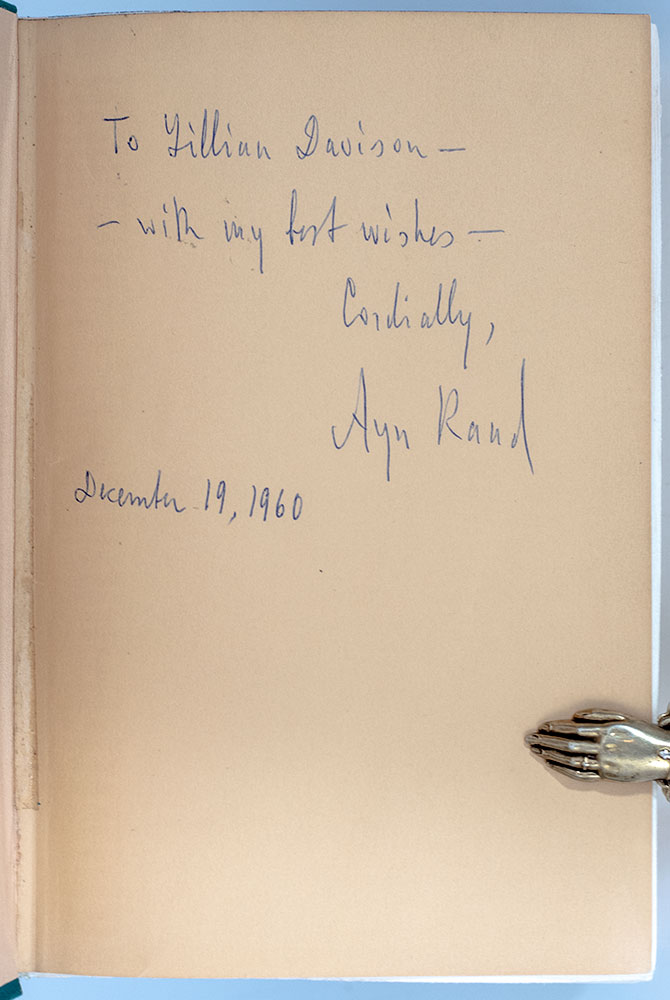 To Lillian Davison —
— with my best wishes —
Cordially,
Ayn Rand
December 19, 1960